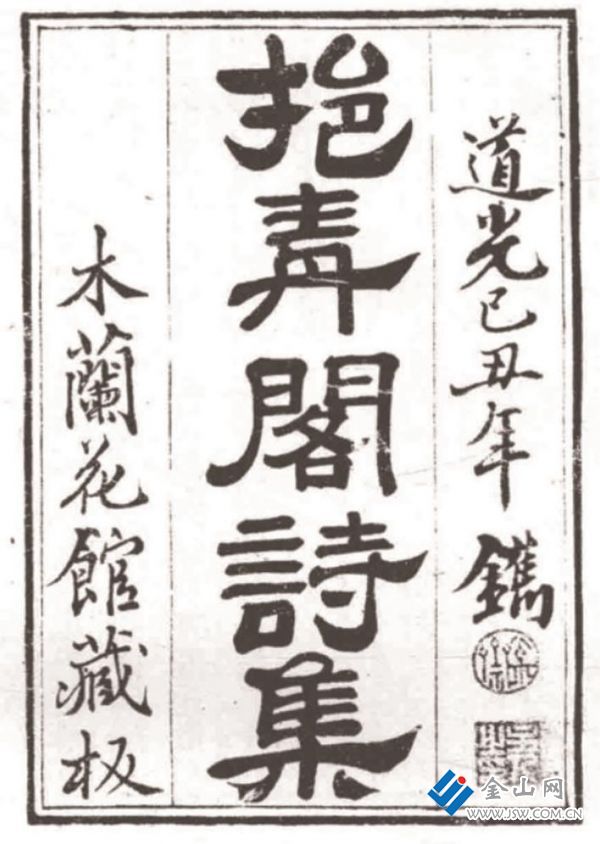 道光己丑年鐫
挹青閣詩集
木蘭花館藏板
金山网
WWW.JSW.COM.CN